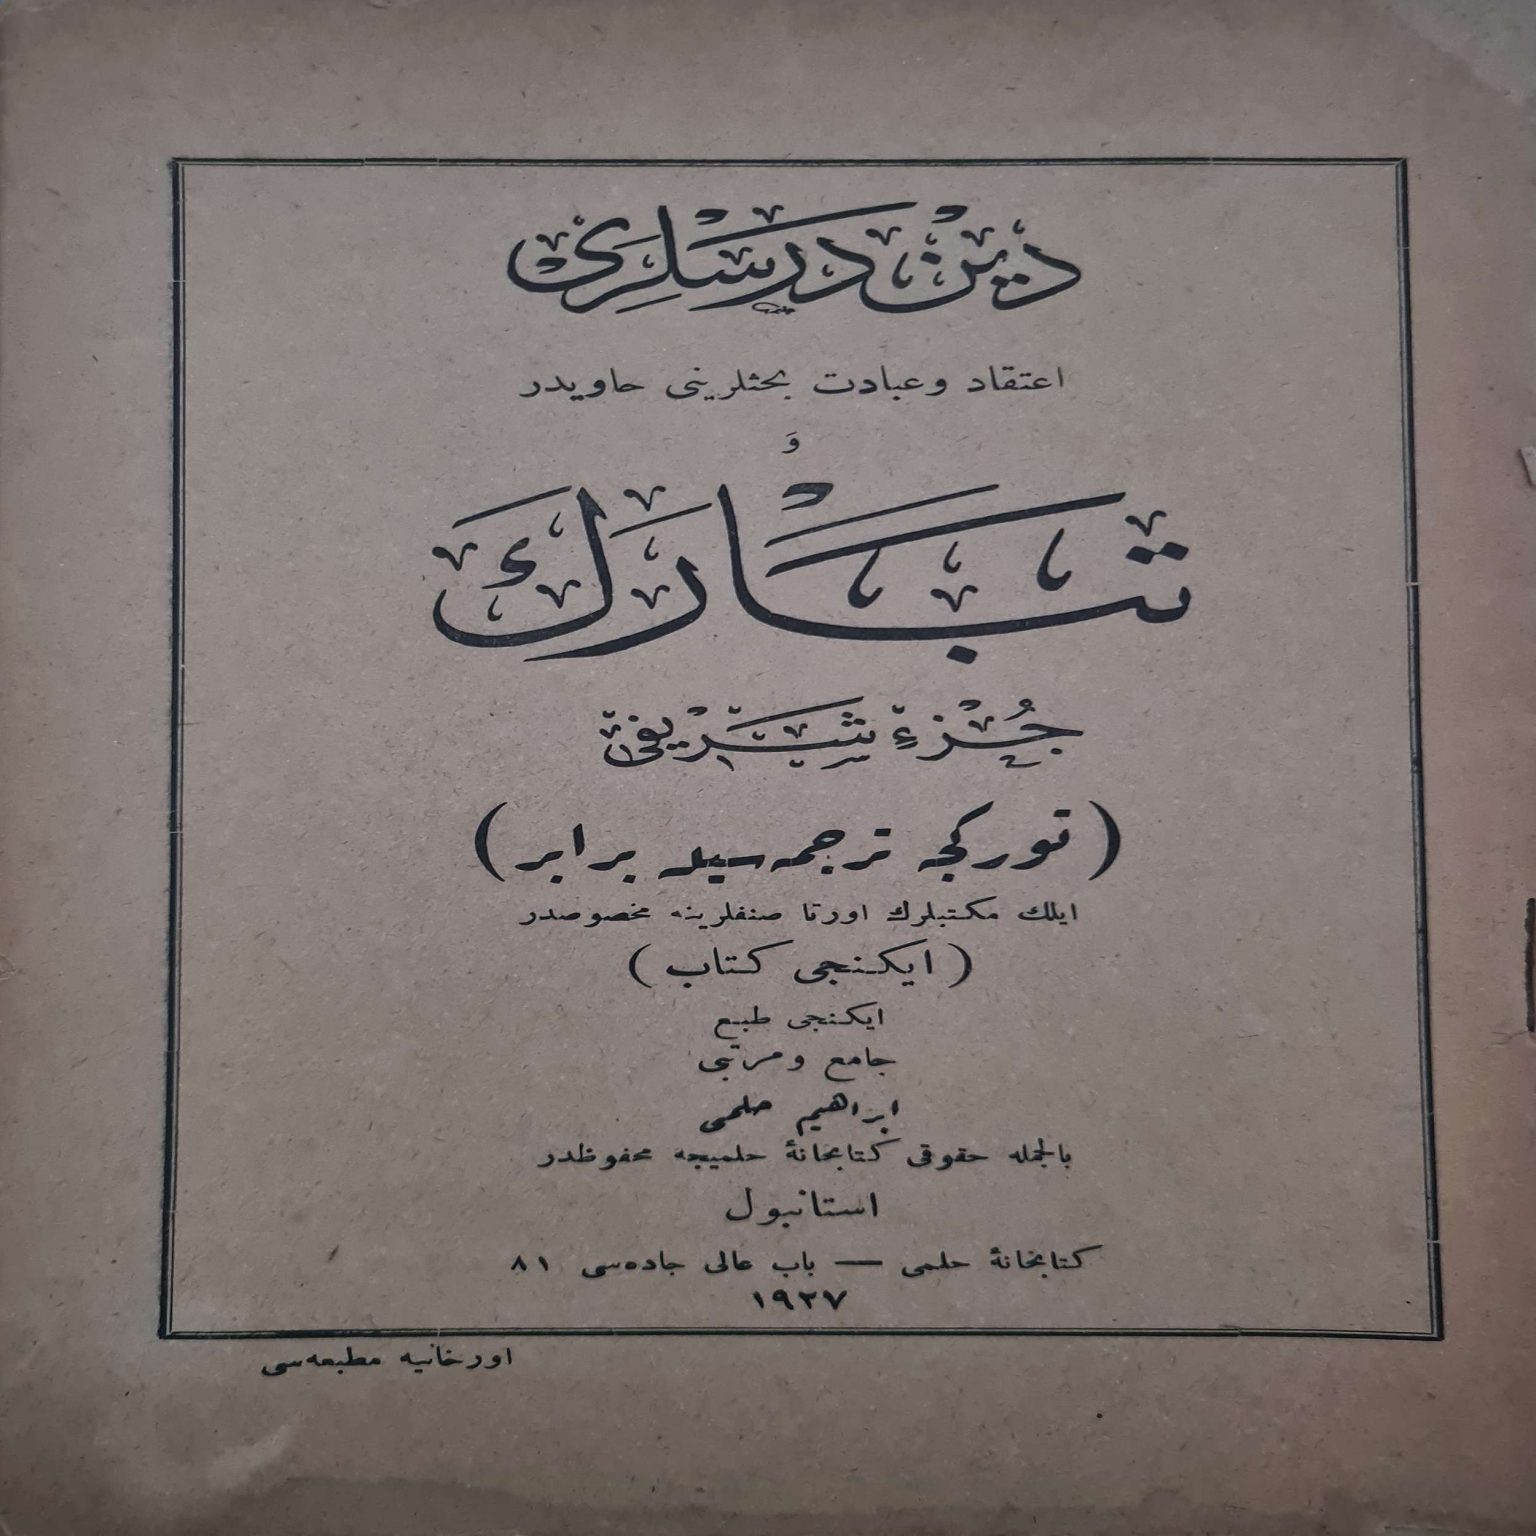 دين درسلرى
اعتقاد و عبادت بحثلرينى حاويدر
و
تبارك
جزء شريفى
( توركجه ترجمه‌سيله برابر )
ايلك مكتبلرك اورتا صنفلرينه مخصوصدر
( ايكنجى كتاب )
ايكنجى طبع
جامع و مرتبى
ابراهيم حلمى
بالجمله حقوقى كتابخانهٔ حلميجه محفوظدر
استانبول
كتابخانهٔ حلمى — باب عالى جاده‌سى ٨١
١٩٢٧
اورخانيه مطبعه‌سى